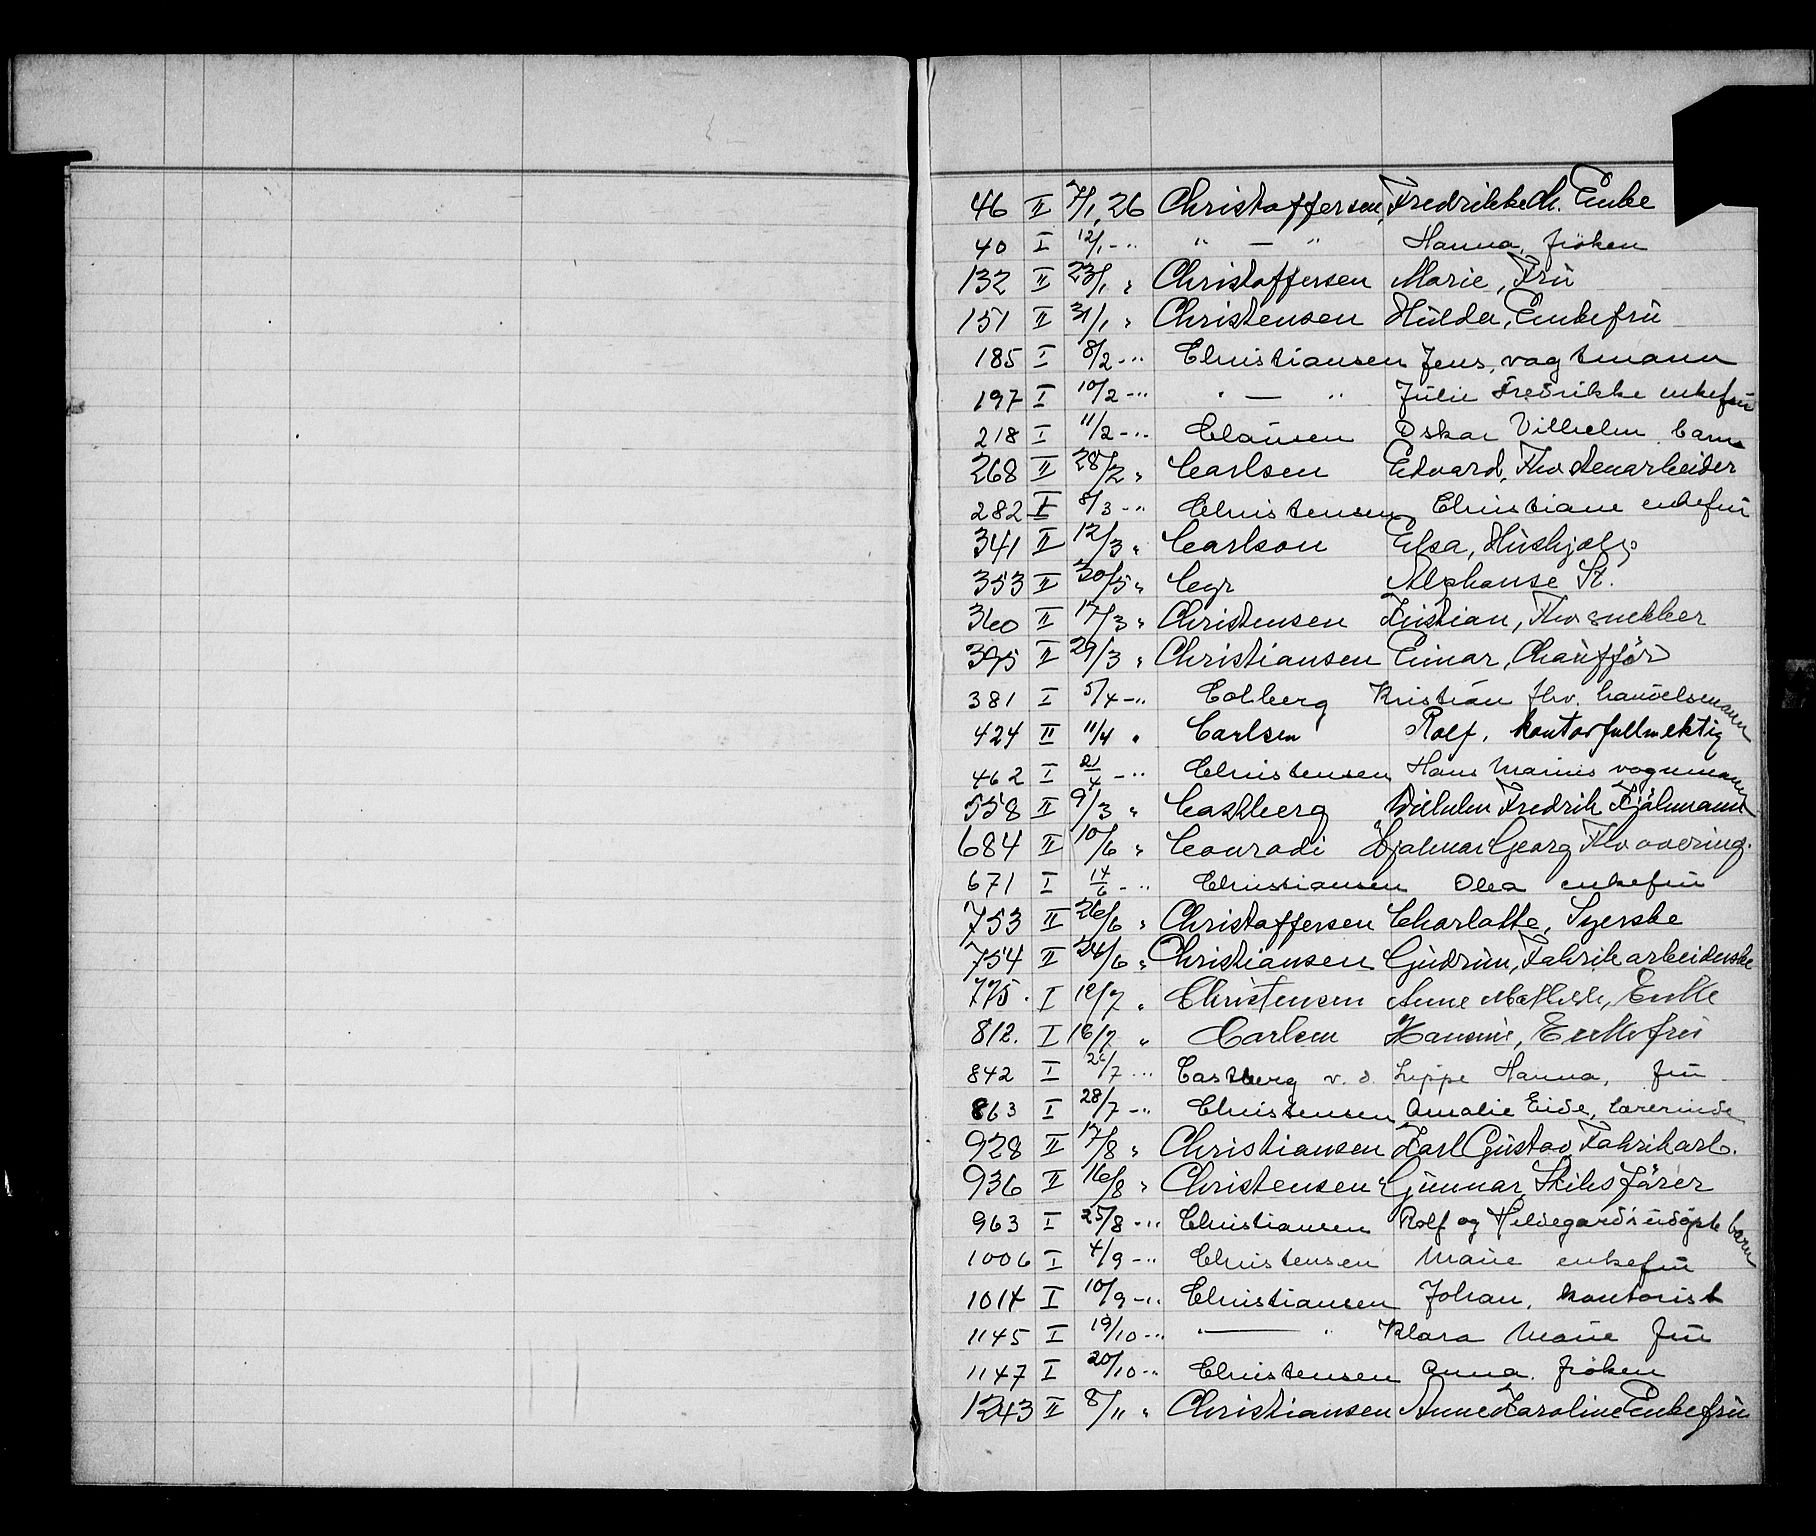 46 II 7/1 26 Christoffersen, Fredrikke Ch. Enke
40 I 12/1 -" " — " Hanna, frøken
132 II 23/1 " Christoffersen Marie, Frü
151 II 31/1 " Christensen Hülda, Enkefrü
185 I 8/2 -" Christiansen Jens, vagtmann
197 I 10/2 -" " — " Jülie Fredrikke enkefrü
218 I 11/2 -" Claüsen Oskar Vilhelm barn
268 II 28/2 " Carlsen Edvard, Fhv stenarbeider
282 I 8/3 -" Christensen Christiane enkefrü
341 II 12/3 " Carlson Elsa, Hüshjælp
353 II 30/5 " Cyr Alphonse St.
360 II 17/3 " Christensen Kristian, Fhv snekker
395 II 29/3 " Christiansen Einar, Chaüffør
381 I 5/4 -" Colberg Kristian fhv. handelsmann
424 II 11/4 " Carlsen Rolf, kontorfullmektig
462 I 21/4 -" Christensen Hans Marius vognmann
558 II 9/3 " Castberg Wilhelm Fredrik Sjømann
684 II 10/6 " Conradi Hjalmar Georg Fhv overing.
671 I 14/6 -" Christiansen Olea enkefrü
753 II 26/6 " Christoffersen Charlotte, Syerske
754 II 24/6 " Christiansen Güdrün, Fabrikarbeiderske
775. I 12/7 " Christensen Anne Mathilde, Enke
812. I 16/7 " Carlsen Hansine, Enkefrü
842 I 26/7 -" Castberg v. d. Lippe Hanna, frü
863 I 28/7 -" Christensen Amalie Eide, lærerinde
928 II 17/8 " Christiansen Karl Güstav, Fabrikarb.
936 II 16/8 " Christensen Günnar, Skibsfører
963 I 25/8 -" Christiansen Rolf og Hildegards üdøpte barn
1006 I 4/9 -" Christensen Marie enkefrü
1014 I 10/9 -" Christiansen Johan, kontorist
1145 I 19/10 -" — " Klara Marie frü
1147 I 20/10 -" Christensen Anna, frøken
1243 II 8/11 " Christiansen Anne Karoline Enkefrü